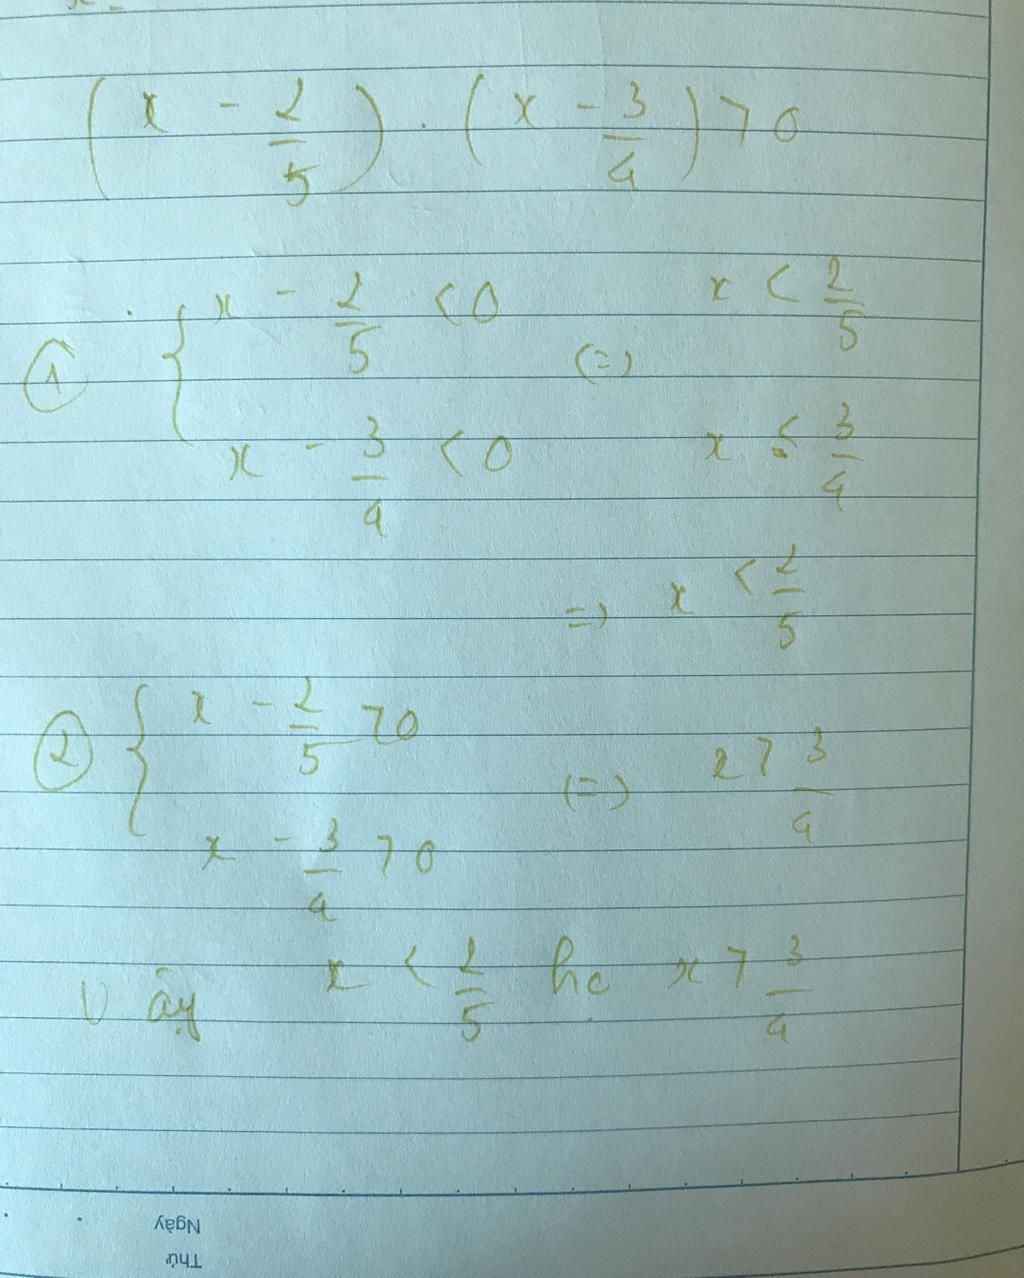 (x - 2/5) . (x - 3/4) > 0
① { x - 2/5 < 0 (=) x < 2/5
x - 3/4 < 0 x < 3/4
=) x < 2/5
② { x - 2/5 > 0 (=) x > 3/4
x - 3/4 > 0
Vậy x < 2/5 hc x > 3/4
Ngày
Thứ